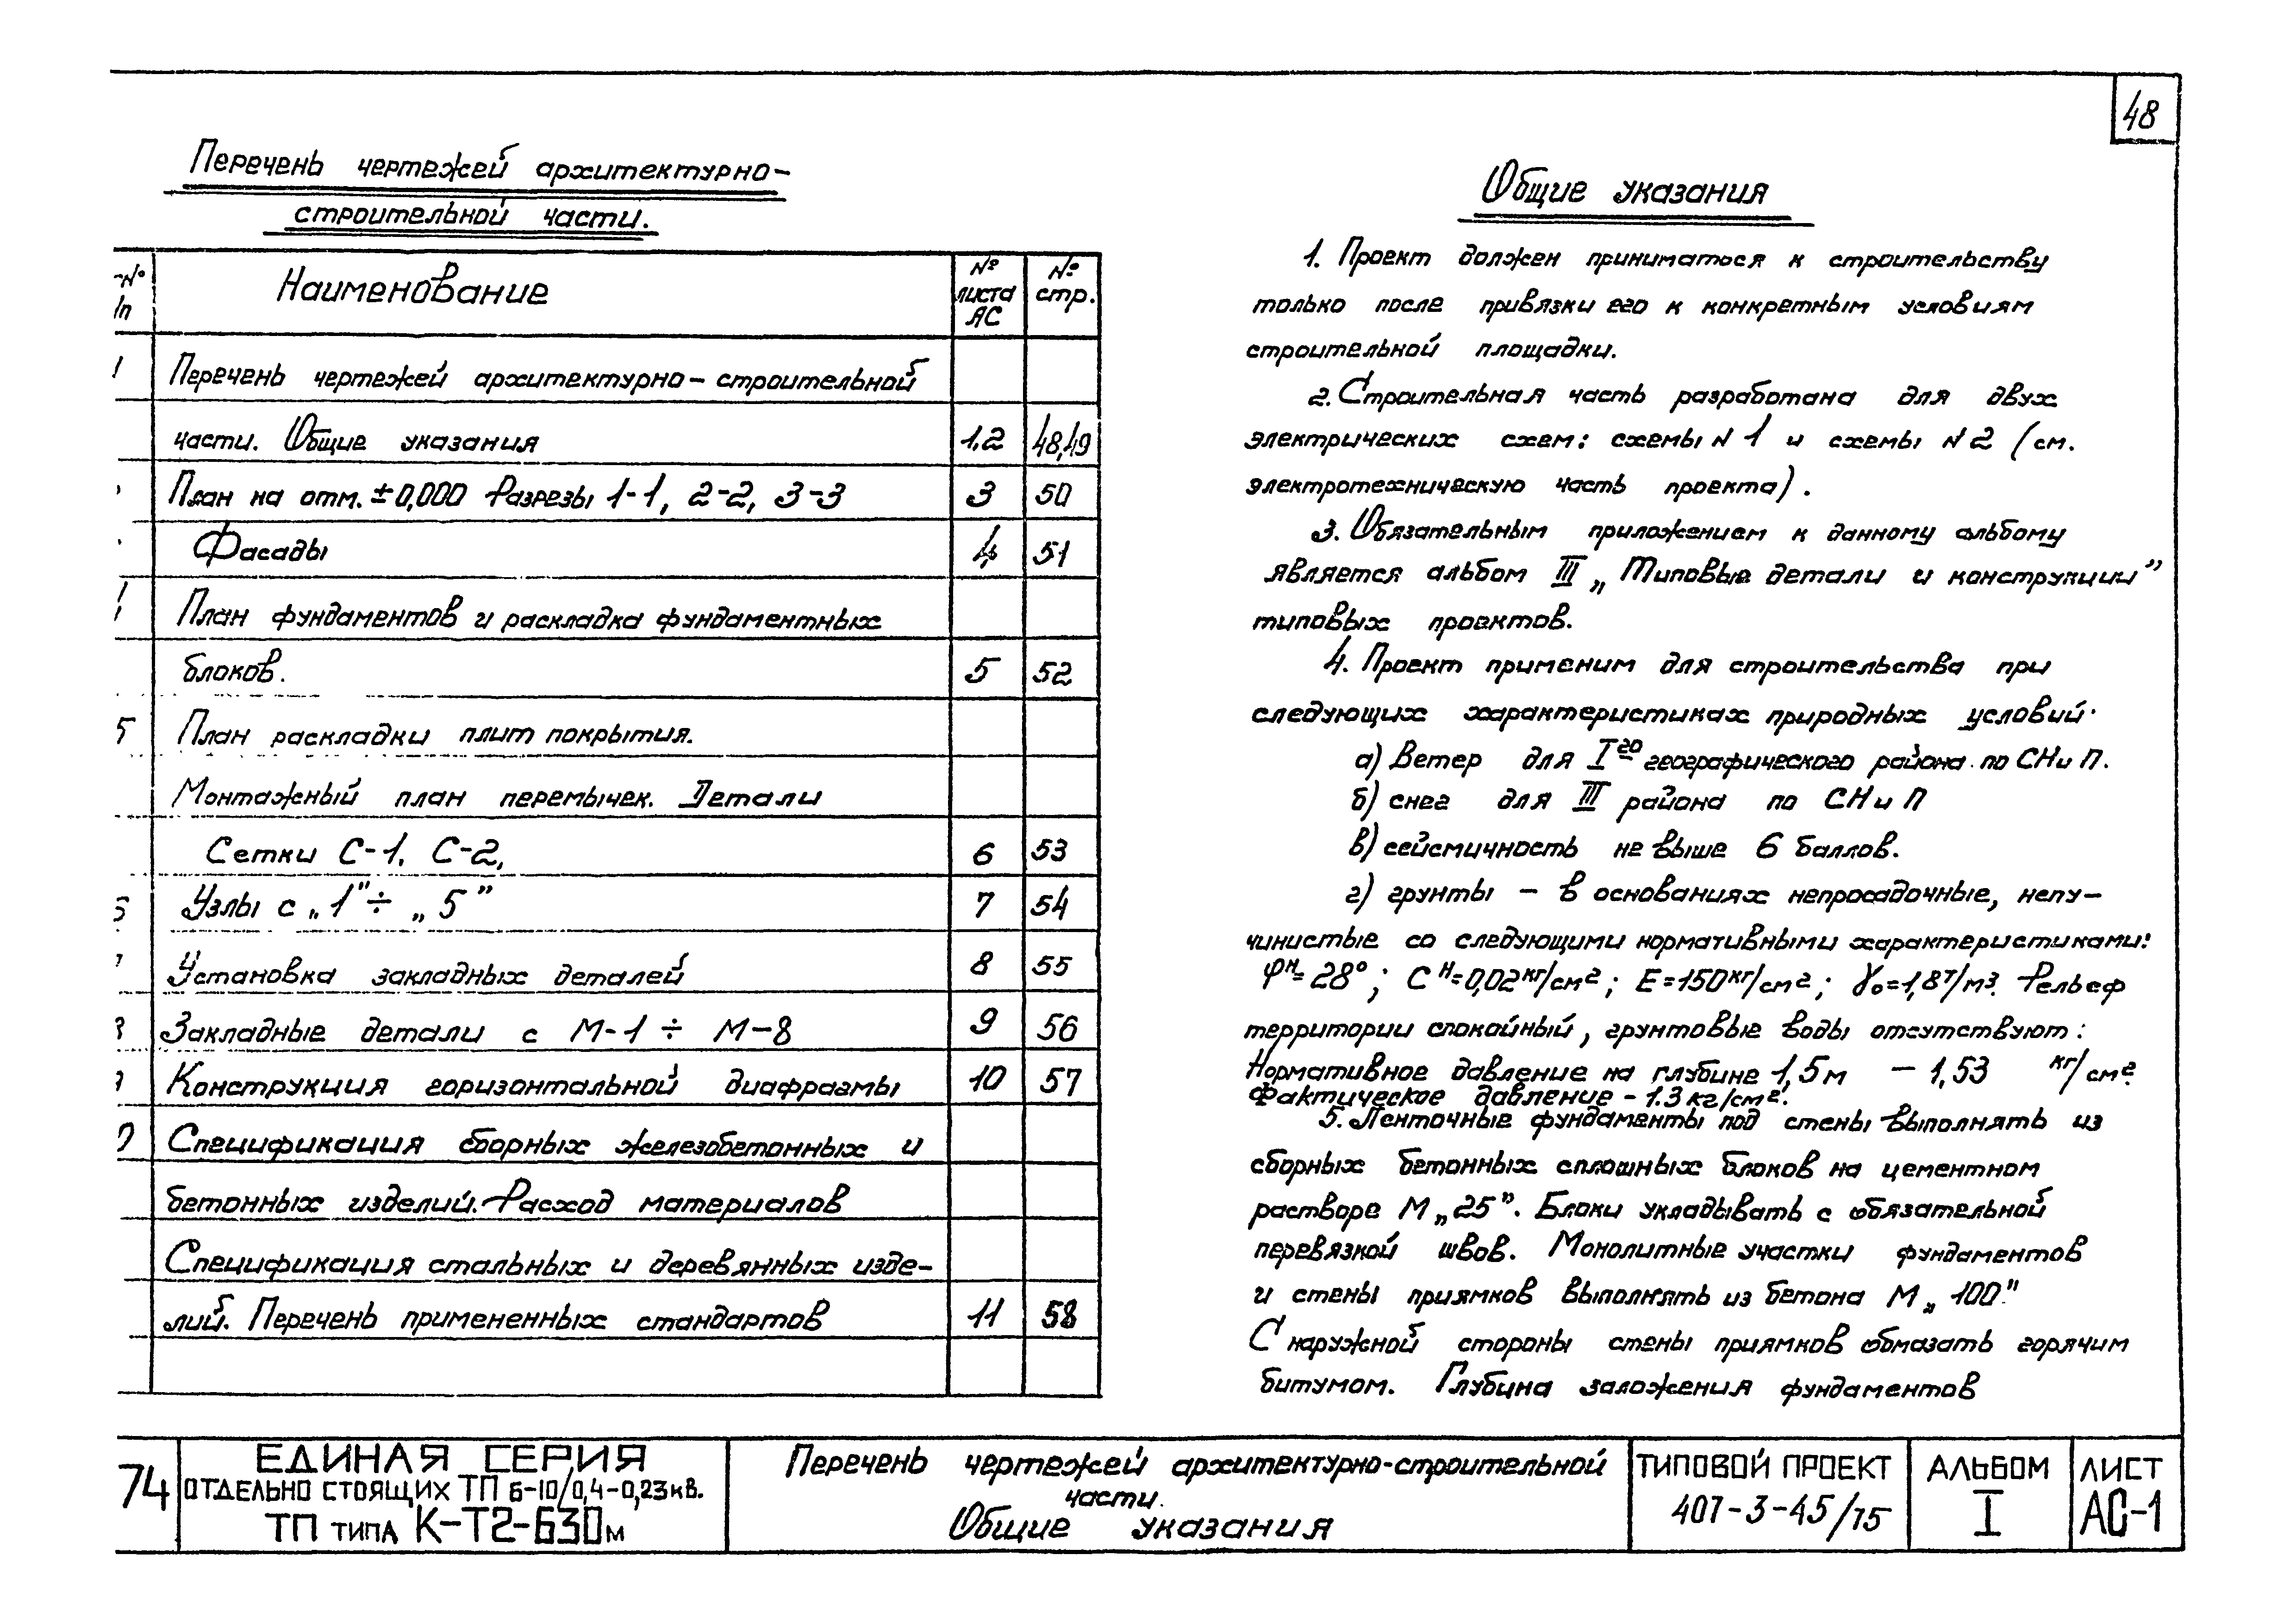 48
Перечень чертежей архитектурно-
строительной части.
№ Наименование № листа АС № стр.
1 Перечень чертежей архитектурно-строительной
части. Общие указания 1,2 48,49
План на отм. ±0,000 Разрезы 1-1, 2-2, 3-3 3 50
Фасады 4 51
План фундаментов и раскладка фундаментных
блоков. 5 52
5 План раскладки плит покрытия.
Монтажный план перемычек. Детали
Сетки С-1. С-2, 6 53
Узлы с „1"÷ „5" 7 54
Установка закладных деталей 8 55
Закладные детали с М-1 ÷ М-8 9 56
Конструкция горизонтальной диафрагмы 10 57
Спецификация сборных железобетонных и
бетонных изделий. Расход материалов
Спецификация стальных и деревянных изде-
лий. Перечень примененных стандартов 11 58
Общие указания
1. Проект должен приниматься к строительству
только после привязки его к конкретным условиям
строительной площадки.
2. Строительная часть разработана для двух
электрических схем: схемы N 1 и схемы N 2 (см.
электротехническую часть проекта).
3. Обязательным приложением к данному альбому
является альбом III „Типовые детали и конструкции"
типовых проектов.
4. Проект применим для строительства при
следующих характеристиках природных условий.
а) Ветер для Iго географического района по СНиП.
б) снег для III района по СНиП
в) сейсмичность не выше 6 баллов.
г) грунты - в основаниях непросадочные, непу-
чинистые со следующими нормативными характеристиками:
φн=28°; Сн=0,02кг/см²; Е=150кг/см²; γо=1,8т/м³. Рельеф
территории спокойный, грунтовые воды отсутствуют:
Нормативное давление на глубине 1,5м - 1,53 кг/см².
Фактическое давление - 1.3 кг/см².
5. Ленточные фундаменты под стены выполнять из
сборных бетонных сплошных блоков на цементном
растворе М„25". Блоки укладывать с обязательной
перевязкой швов. Монолитные участки фундаментов
и стены приямков выполнять из бетона М„100"
С наружной стороны стены приямков обмазать горячим
битумом. Глубина заложения фундаментов
74
ЕДИНАЯ СЕРИЯ
ОТДЕЛЬНО СТОЯЩИХ ТП 6-10/0,4-0,23кв.
ТП ТИПА К-Т2-630м
Перечень чертежей архитектурно-строительной
части.
Общие указания
ТИПОВОЙ ПРОЕКТ
407-3-45/75
АЛЬБОМ
I
ЛИСТ
АС-1